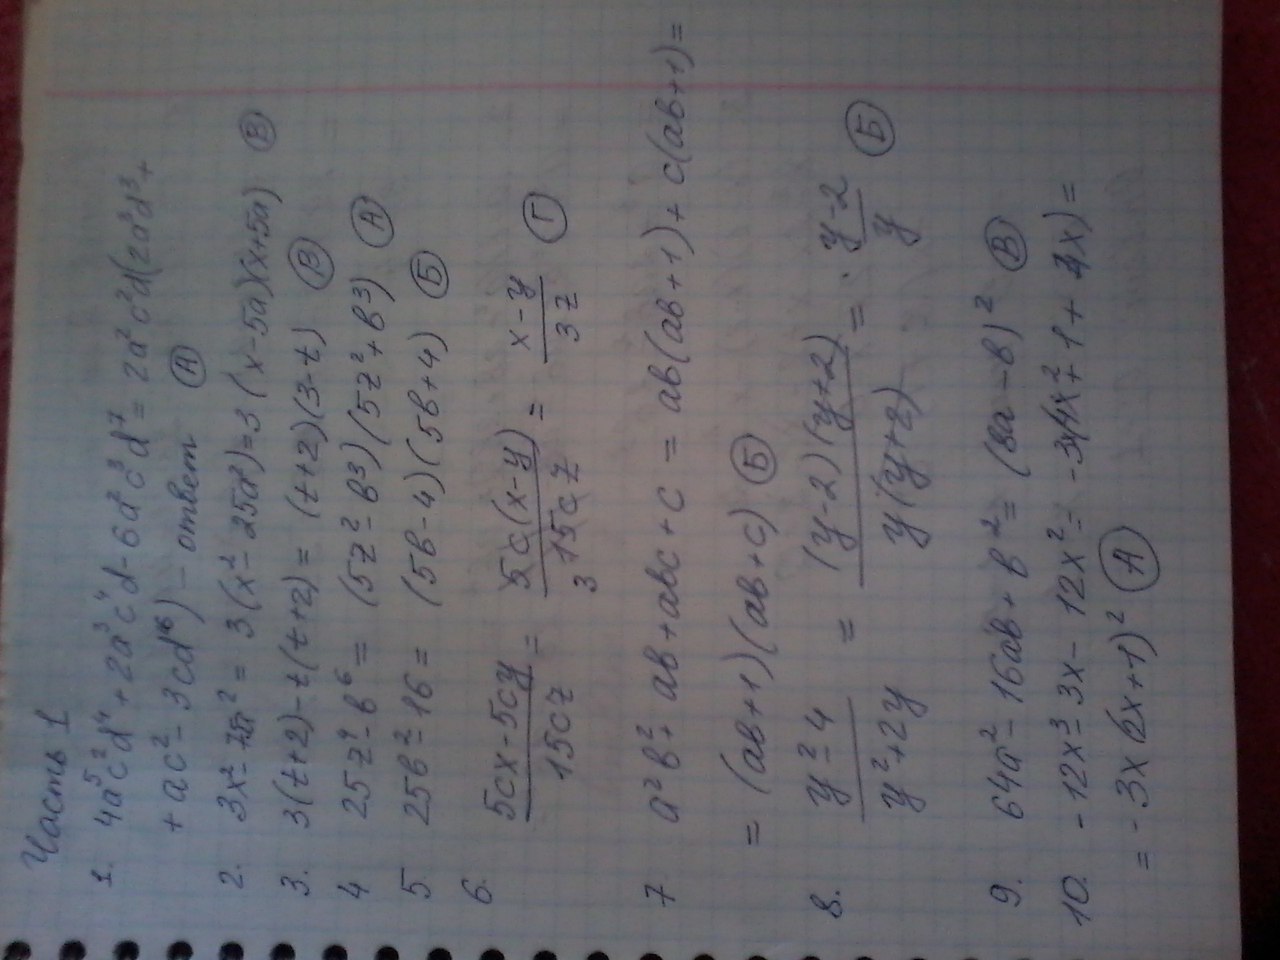 Часть 1
1. 4a⁵c²d⁴ + 2a³c⁴d - 6a²c³d⁷ = 2a²c²d(2a³d³ +
+ ac² - 3cd⁶) - ответ (А)
2. 3x² - 75a² = 3(x² - 25a²) = 3(x - 5a)(x + 5a) (В)
3. 3(t+2) - t(t+2) = (t+2)(3-t) (В)
4 25z⁴ - b⁶ = (5z² - b³)(5z² + b³) (А)
5. 25b² - 16 = (5b - 4)(5b + 4) (Б)
6. (5cx - 5cy)/(15cz) = (5c(x-y))/(15cz) 3 = (x-y)/(3z) (Г)
7 a²b² + ab + abc + c = ab(ab+1) + c(ab+1) =
= (ab+1)(ab+c) (Б)
8. (y² - 4)/(y² + 2y) = ((y-2)(y+2))/(y(y+2)) = (y-2)/y (Б)
9. 64a² - 16ab + b² = (8a - b)² (В)
10. -12x³ - 3x - 12x² = -3x(4x² + 1 + 4x) =
= -3x(2x+1)² (А)